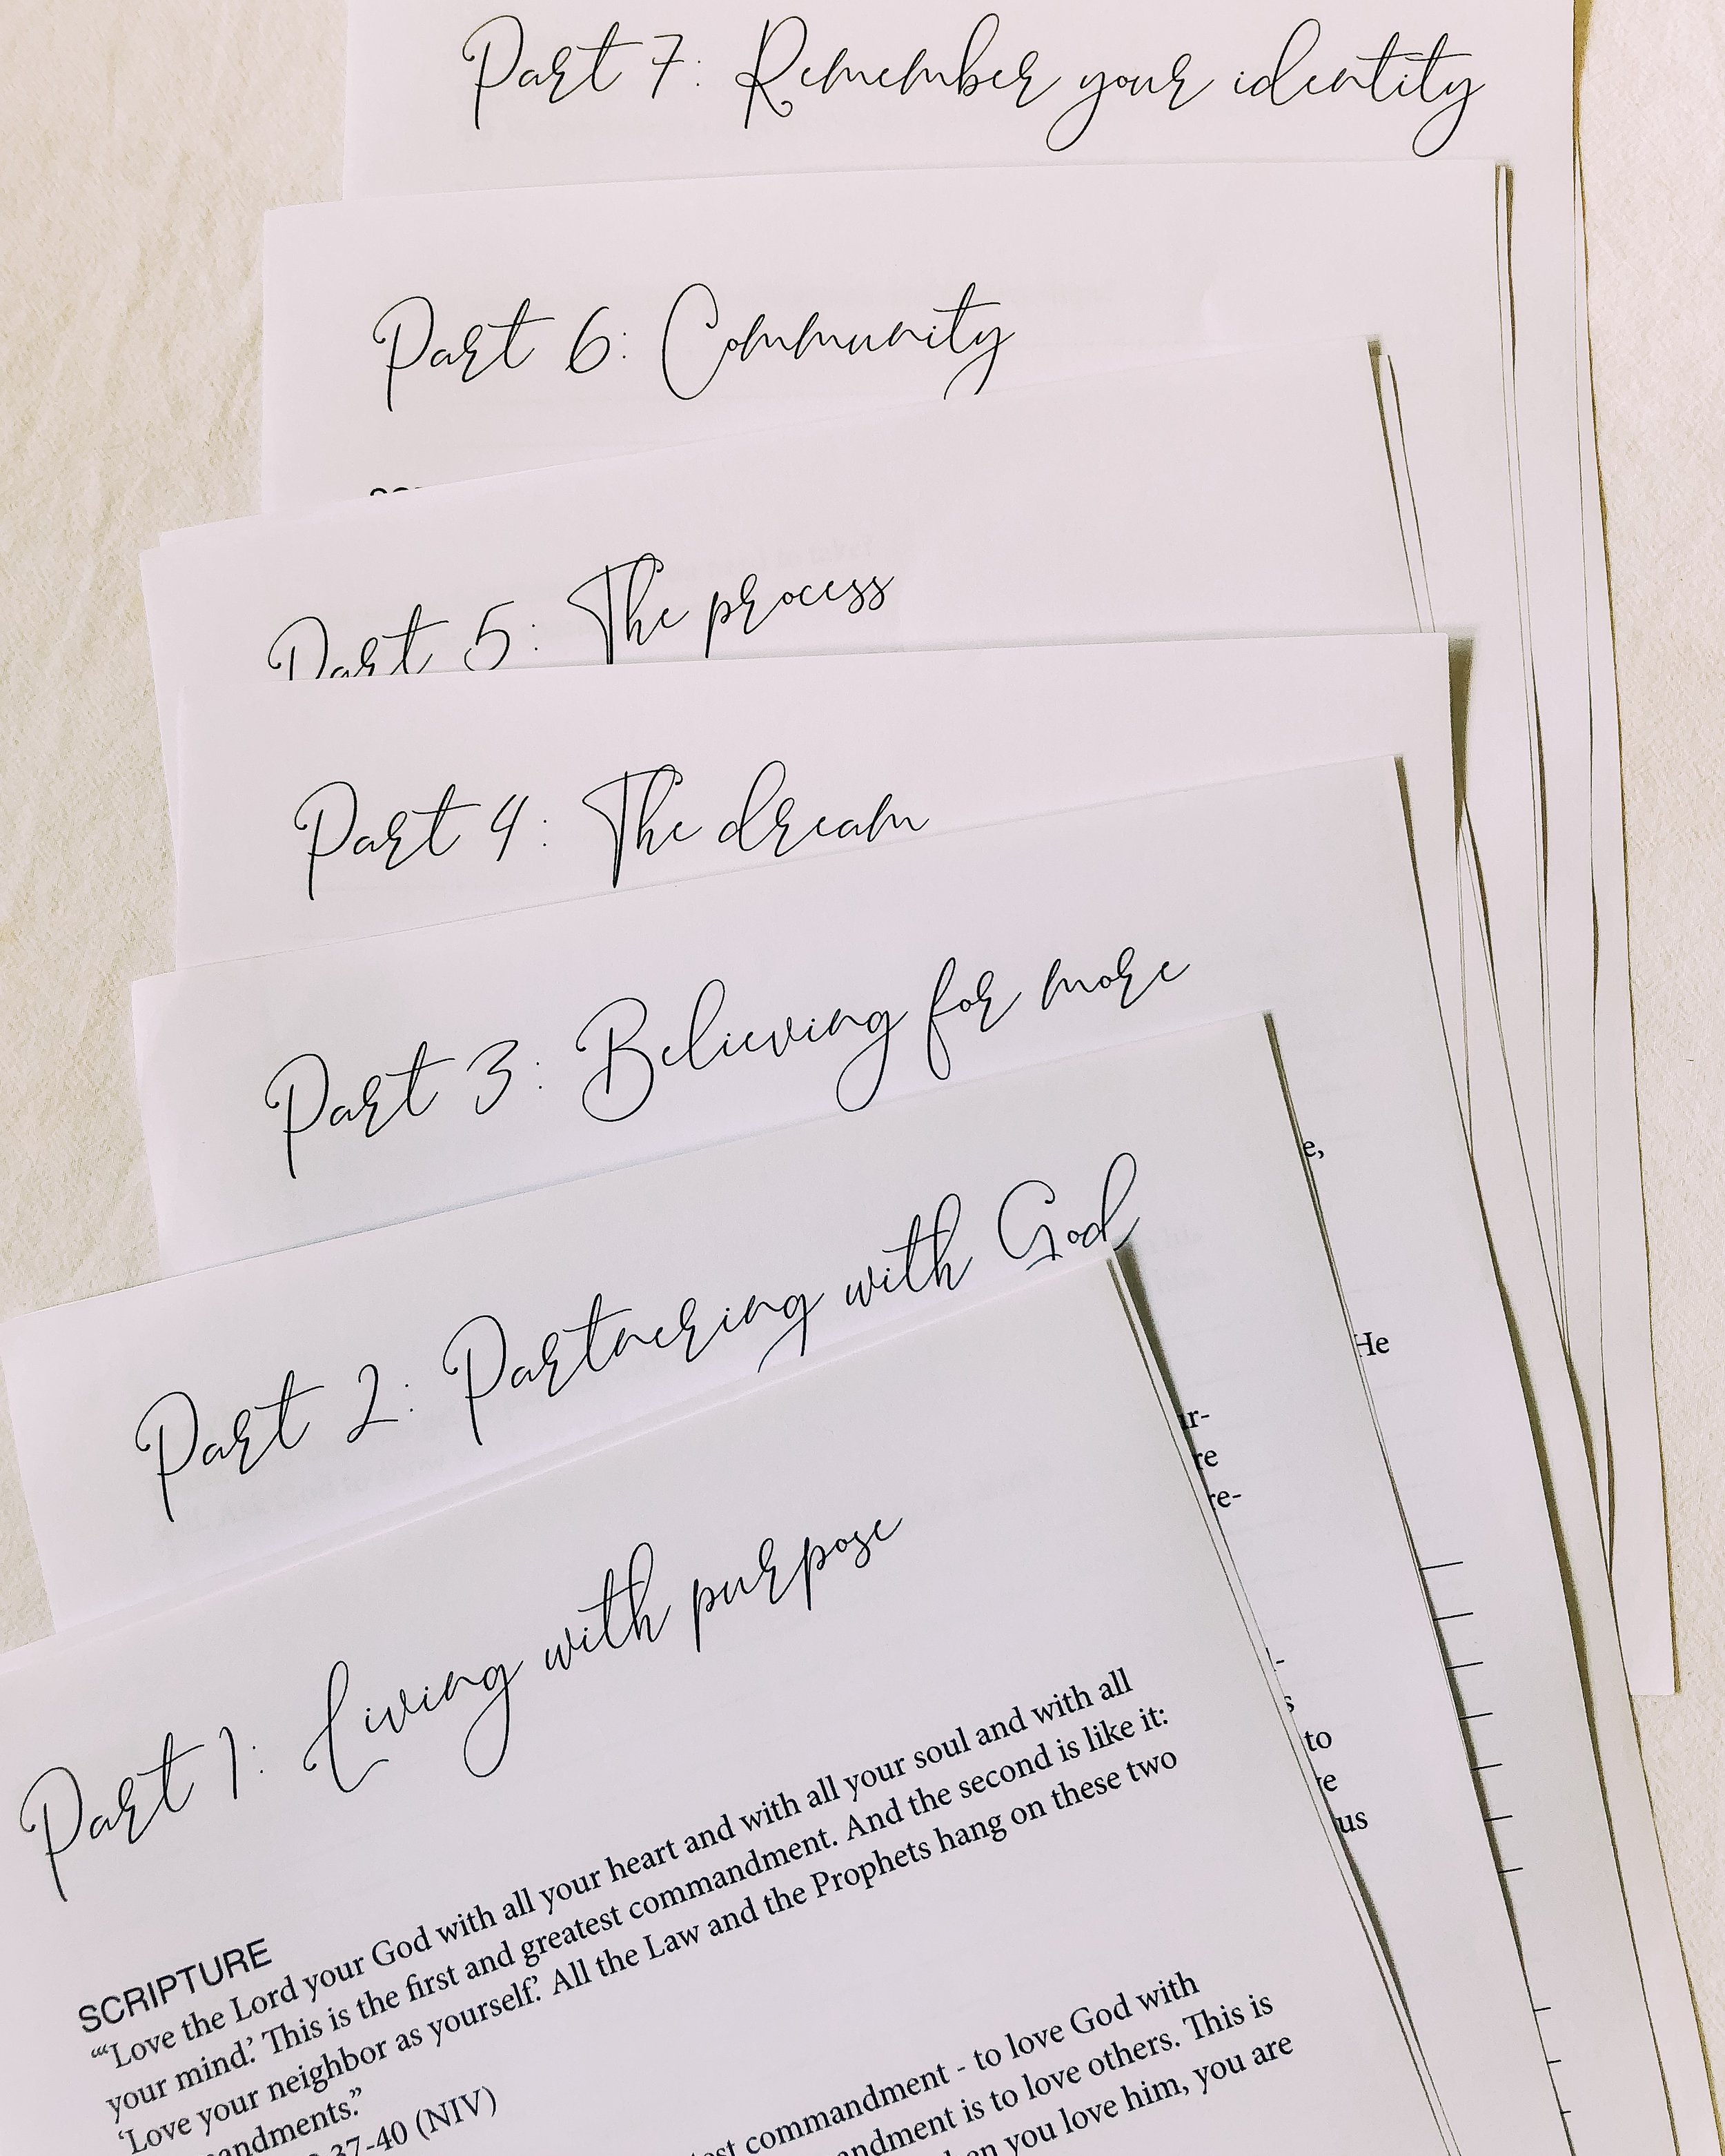 Part 7: Remember your identity
Part 6: Community
Part 5: The process
Part 4: The dream
Part 3: Believing for more
Part 2: Partnering with God
Part 1: Living with purpose
SCRIPTURE
“‘Love the Lord your God with all your heart and with all your soul and with all
your mind.’ This is the first and greatest commandment. And the second is like it:
‘Love your neighbor as yourself.’ All the Law and the Prophets hang on these two
37-40 (NIV)
commandment - to love God with
is to love others. This is
you love him, you are
e,
He
re
re-
s
to
us